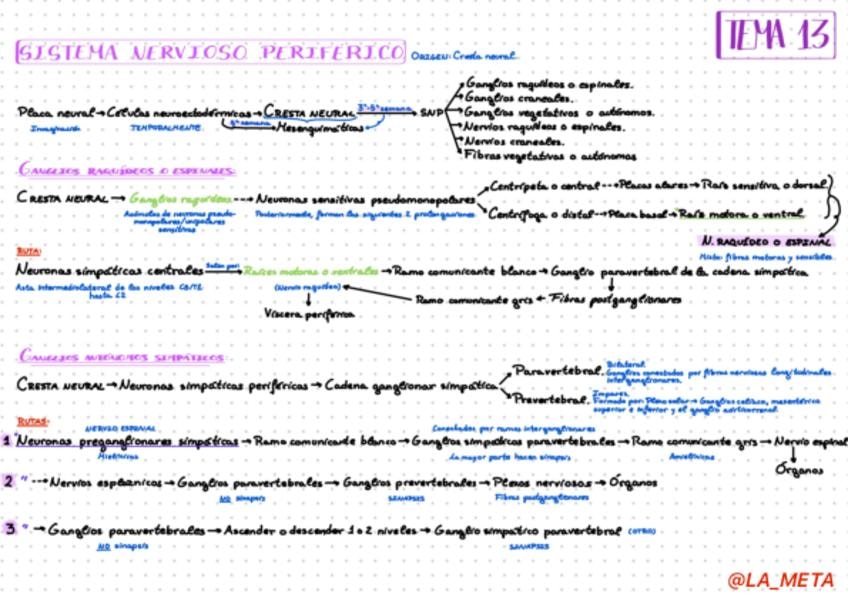 TEMA 13
SISTEMA NERVIOSO PERIFERICO ORIGEN: Cresta neural
Ganglios raquídeos o espinales.
Ganglios craneales.
Placa neural → Células neuroectodérmicas → CRESTA NEURAL 3ª-5ª semana → SNP Ganglios vegetativos o autónomos.
Invaginación TEMPORALMENTE semana Mesenquimáticas Nervios raquídeos o espinales.
Nervios craneales.
Fibras vegetativas o autónomas
GANGLIOS RAQUÍDEOS O ESPINALES:
Centrípeta o central --→ Placas alares → Raíz sensitiva o dorsal
CRESTA NEURAL → Ganglios raquídeos --→ Neuronas sensitivas pseudomonopolares
Centrífoga o distal --→ Placa basal → Raíz motora o ventral
Acúmulos de neuronas pseudo- Posteriormente, forman las siguientes 2 prolongaciones
monopolares/unipolares
sensitivas
N. RAQUÍDEO O ESPINAL
Mixto: fibras motoras y sensibles
RUTA:
Neuronas simpáticas centrales Salen por: → Raíces motoras o ventrales → Ramo comunicante blanco → Ganglio paravertebral de la cadena simpática
Asta intermediolateral de los niveles C8/T1 (Nervio raquídeo)
hasta L2
Ramo comunicante gris ← Fibras postganglionares
Víscera periférica
GANGLIOS AUTÓNOMOS SIMPÁTICOS:
Paravertebral. Bilateral.
Ganglios conectados por fibras nerviosas longitudinales
interganglionares.
CRESTA NEURAL → Neuronas simpáticas periféricas → Cadena ganglionar simpática
Prevertebral. Impares.
Formado por: Plexo solar → Ganglios celíaco, mesentérico
superior e inferior y el ganglio aórticorrenal.
RUTAS:
NERVIO ESPINAL Conectados por ramos interganglionares
1 Neuronas preganglionares simpáticas → Ramo comunicante blanco → Ganglios simpáticos paravertebrales → Ramo comunicante gris → Nervio espinal
Mielínicas La mayor parte hacen sinapsis Amielínicas
Órganos
2 " --→ Nervios esplácnicos → Ganglios paravertebrales → Ganglios prevertebrales → Plexos nerviosos → Órganos
NO sinapsis SINAPSIS Fibras postganglionares
3 " → Ganglios paravertebrales → Ascender o descender 1 o 2 niveles → Ganglio simpático paravertebral (OTRO)
NO sinapsis SINAPSIS
@LA_META